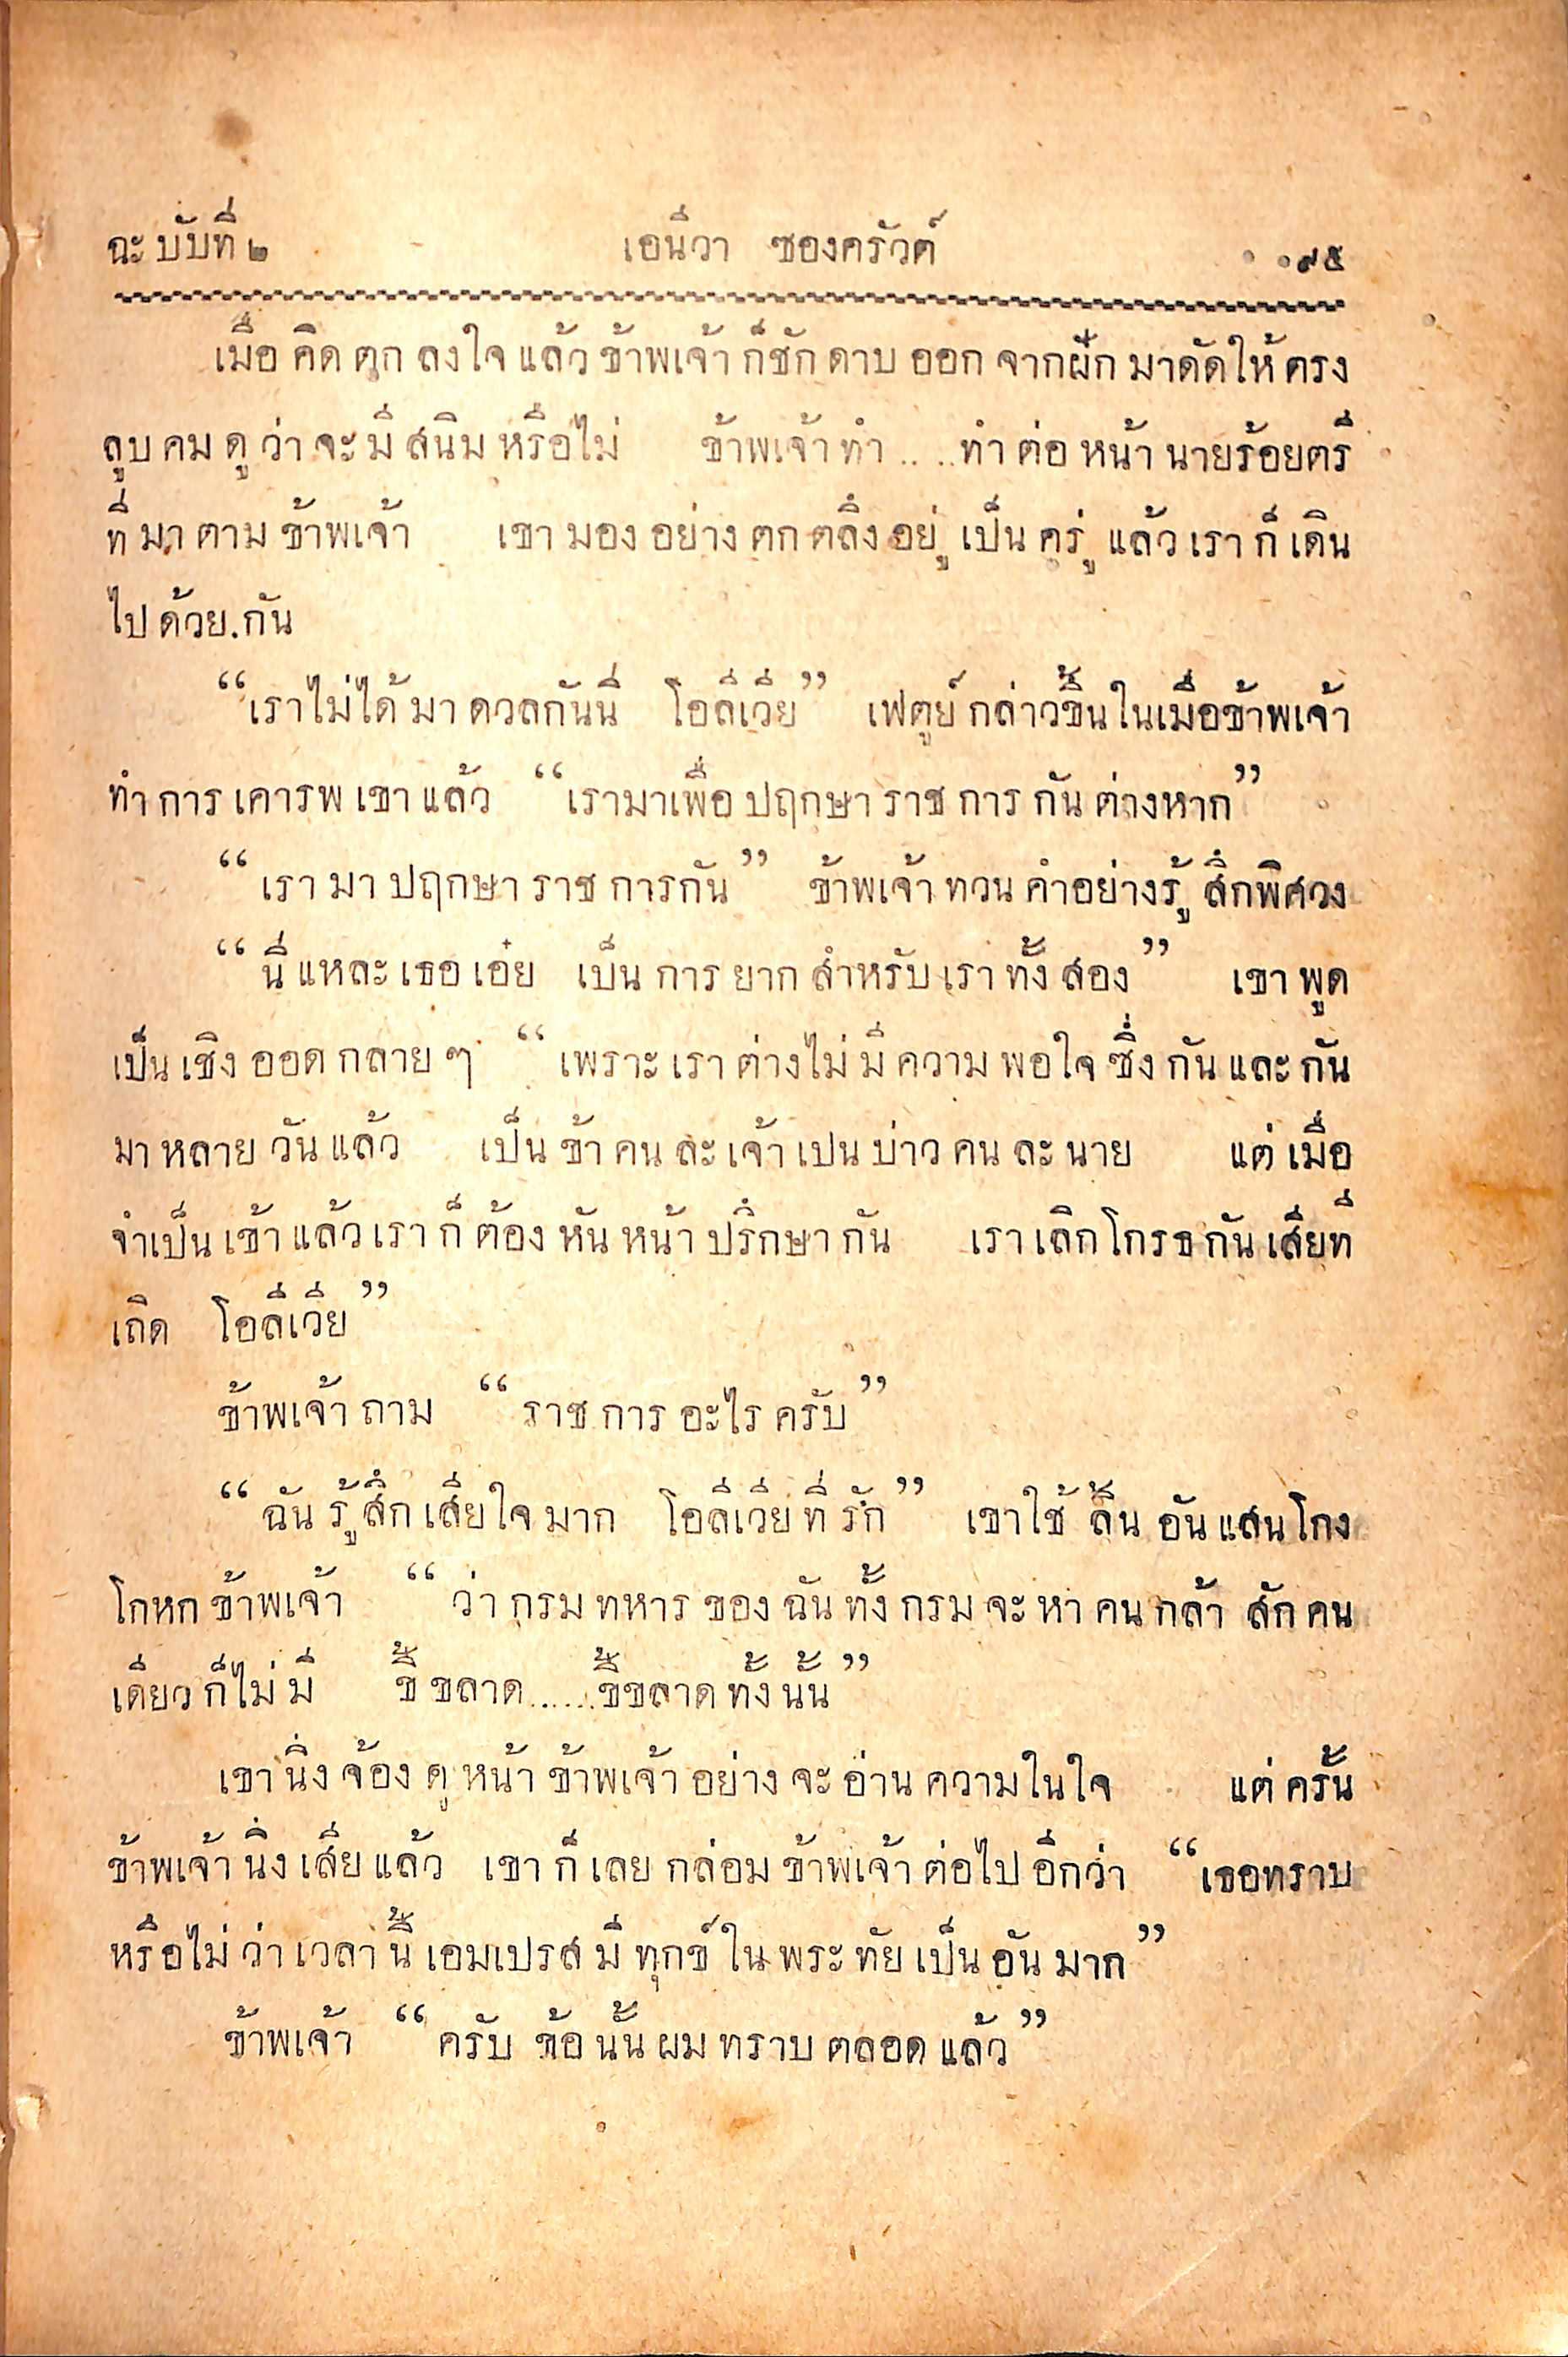 ฉะบับที่ ๒ เอนีวา ซองครัวค์ ๙๕
เมื่อคิดตกลงใจแล้วข้าพเจ้าก็ชักดาบออกจากฝักมาดัดให้ตรง
ลูบคมดูว่าจะมีสนิมหรือไม่ ข้าพเจ้าทำ.....ทำต่อหน้านายร้อยตรี
ที่มาตามข้าพเจ้า เขามองอย่างตกตลึงอยู่เป็นครู่ แล้วเราก็เดิน
ไปด้วย.กัน
“เราไม่ได้มาดวลกันนี่ โอลีเวีย” เฟตูย์กล่าวขึ้นในเมื่อข้าพเจ้า
ทำการเคารพเขาแล้ว “เรามาเพื่อปฤกษาราชการกันต่างหาก”
“เรามาปฤกษาราชการกัน” ข้าพเจ้าทวนคำอย่างรู้สึกพิศวง
“นี่แหละเธอเอ๋ย เป็นการยากสำหรับเราทั้งสอง” เขาพูด
เป็นเชิงออดกลายๆ “เพราะเราต่างไม่มีความพอใจซึ่งกันและกัน
มาหลายวันแล้ว เป็นข้าคนละเจ้าเปนบ่าวคนละนาย แต่เมื่อ
จำเป็นเข้าแล้วเราก็ต้องหันหน้าปรึกษากัน เราเลิกโกรธกันเสียที
เถิด โอลีเวีย”
ข้าพเจ้าถาม “ราชการอะไรครับ”
“ฉันรู้สึกเสียใจมาก โอลีเวียที่รัก” เขาใช้ลิ้นอันแสนโกง
โกหกข้าพเจ้า “ว่ากรมทหารของฉันทั้งกรมจะหาคนกล้าสักคน
เดียวก็ไม่มี ขี้ขลาด......ขี้ขลาดทั้งนั้น”
เขานิ่งจ้องดูหน้าข้าพเจ้าอย่างจะอ่านความในใจ แต่ครั้น
ข้าพเจ้านิ่งเสียแล้ว เขาก็เลยกล่อมข้าพเจ้าต่อไปอีกว่า “เธอทราบ
หรือไม่ว่าเวลานี้เอมเปรสมีทุกข์ในพระทัยเป็นอันมาก”
ข้าพเจ้า “ครับ ข้อนั้นผมทราบตลอดแล้ว”